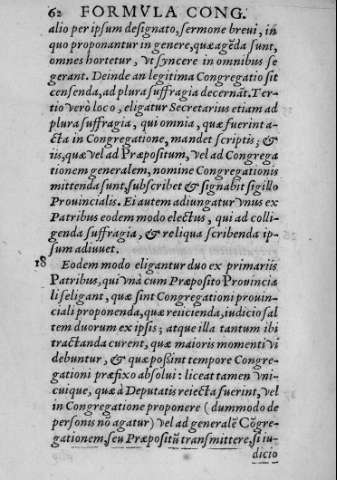 62 FORMVLA CONG.
alio per ipsum designato, sermone breui, in
quo proponantur in genere, quæ agẽda sunt,
omnes hortetur, vt syncere in omnibus se
gerant. Deinde an legitima Congregatio sit
censenda, ad plura suffragia decernãt. Ter-
tio verò loco, eligatur Secretarius etiam ad
plura suffragia, qui omnia, quæ fuerint a-
cta in Congregatione, mandet scriptis; &
iis, quæ vel ad Præpositum, vel ad Congrega
tionem generalem, nomine Congregationis
mittenda sunt, subscribet & signabit sigillo
Prouincialis. Ei autem adiungatur vnus ex
Patribus eodem modo electus, qui ad colli-
genda suffragia, & reliqua scribenda ip-
sum adiuuet.
18 Eodem modo eligantur duo ex primariis
Patribus, qui vnà cum Præposito Prouincia
li seligant, quæ sint Congregationi prouin-
ciali proponenda, quæ reiicienda, iudicio sal
tem duorum ex ipsis; atque illa tantum ibi
tractanda curent, quæ maioris momenti vi
debuntur, & quæ possint tempore Congre-
gationi præfixo absolui: liceat tamen vni-
cuique, quæ à Deputatis reiecta fuerint, vel
in Congregatione proponere (dummodo de
personis nõ agatur) vel ad generalẽ Cõgre-
gationem, seu Præpositũ transmittere, si iu-
dicio